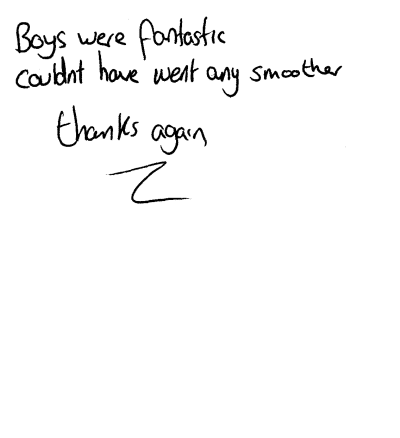 Boys were fantastic
couldnt have went any smoother
thanks again